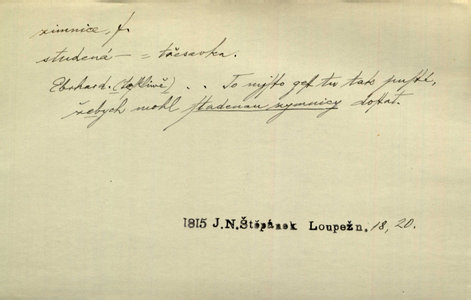 zimnice, f.
studená – = třesavka.
Eberhard. (tesklivě) . . To mjsto gest tu tak pusté,
žebych mohl studenau zymnicy dostat.
1815 J.N.Štěpánek Loupežn. 18, 20.